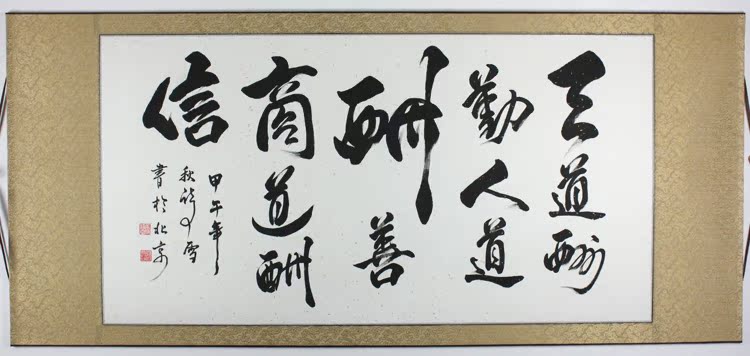 天道酬
勤人道
酬善
商道酬
信
甲午年
秋雪
書於北京